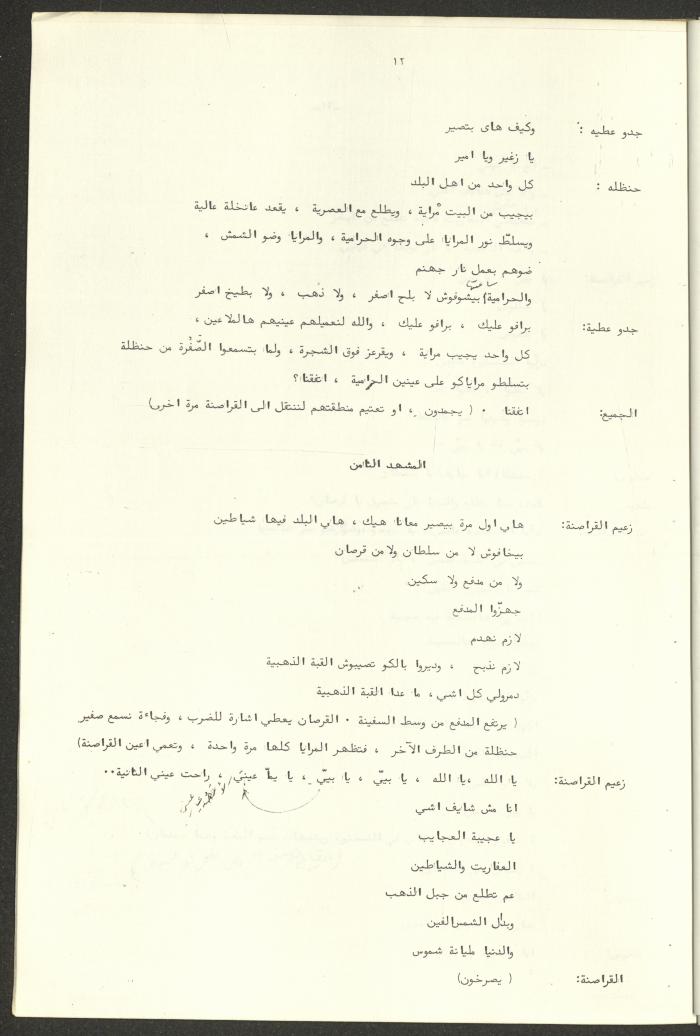 ١٢
جدو عطيه : وكيف هاى بتصير
يا زغير ويا امير
حنظله : كل واحد من اهل البلد
بيجيب من البيت مراية ، ويطلع مع العصرية ، يقعد عانخلة عالية
ويسلطّ نور المرايا على وجوه الحرامية ، والمرايا وضو الشمش ،
ضوهم بعمل نار جهنم
والحرامية ساعتها بيشوفوش لا بلح اصفر ، ولا ذهب ، ولا بطيخ اصفر
جدو عطية: برافو عليك ، برافو عليك ، والله لنعميلهم عينيهم هالملاعين ،
كل واحد يجيب مراية ، ويقرعز فوق الشجرة ، ولما بتسمعوا الصُّفْرة من حنظلة
بتسلطو مراياكو على عينين الحرامية ، اتفقنا؟
الجميع: اتفقنا . ( يجمدون ، او تعتيم منطقتهم لننتقل الى القراصنة مرة اخرى)
المشهد الثامن
زعيم القراصنة: هاي اول مرة بيصير معانا هيك ، هاي البلد فيها شياطين
بيخافوش لا من سلطان ولا من قرصان
ولا من مدفع ولا سكين
جهزّوا المدفع
لازم نهدم
لازم نذبح ، وديروا بالكو تصيبوش القبة الذهبية
دمرولي كل اشي ، ما عدا القبة الذهبية
( يرتفع المدفع من وسط السفينة . القرصان يعطي اشارة للضرب ، وفجاءة نسمع صفير
حنظلة من الطرف الآخر ، فتظهر المرايا كلها مرة واحدة ، وتعمي اعين القراصنة)
زعيم القراصنة: يا الله ،يا الله ، يا بييّ ، يا بييّ ، يا يمّا عيني ، راحت عيني الثانية..
انا مش شايف اشي
يا عجيبة العجايب
العفاريت والشياطين
عم تطلع من جبل الذهب
وبدل الشمس الفين
والدنيا مليانة شموس
القراصنة: ( يصرخون)